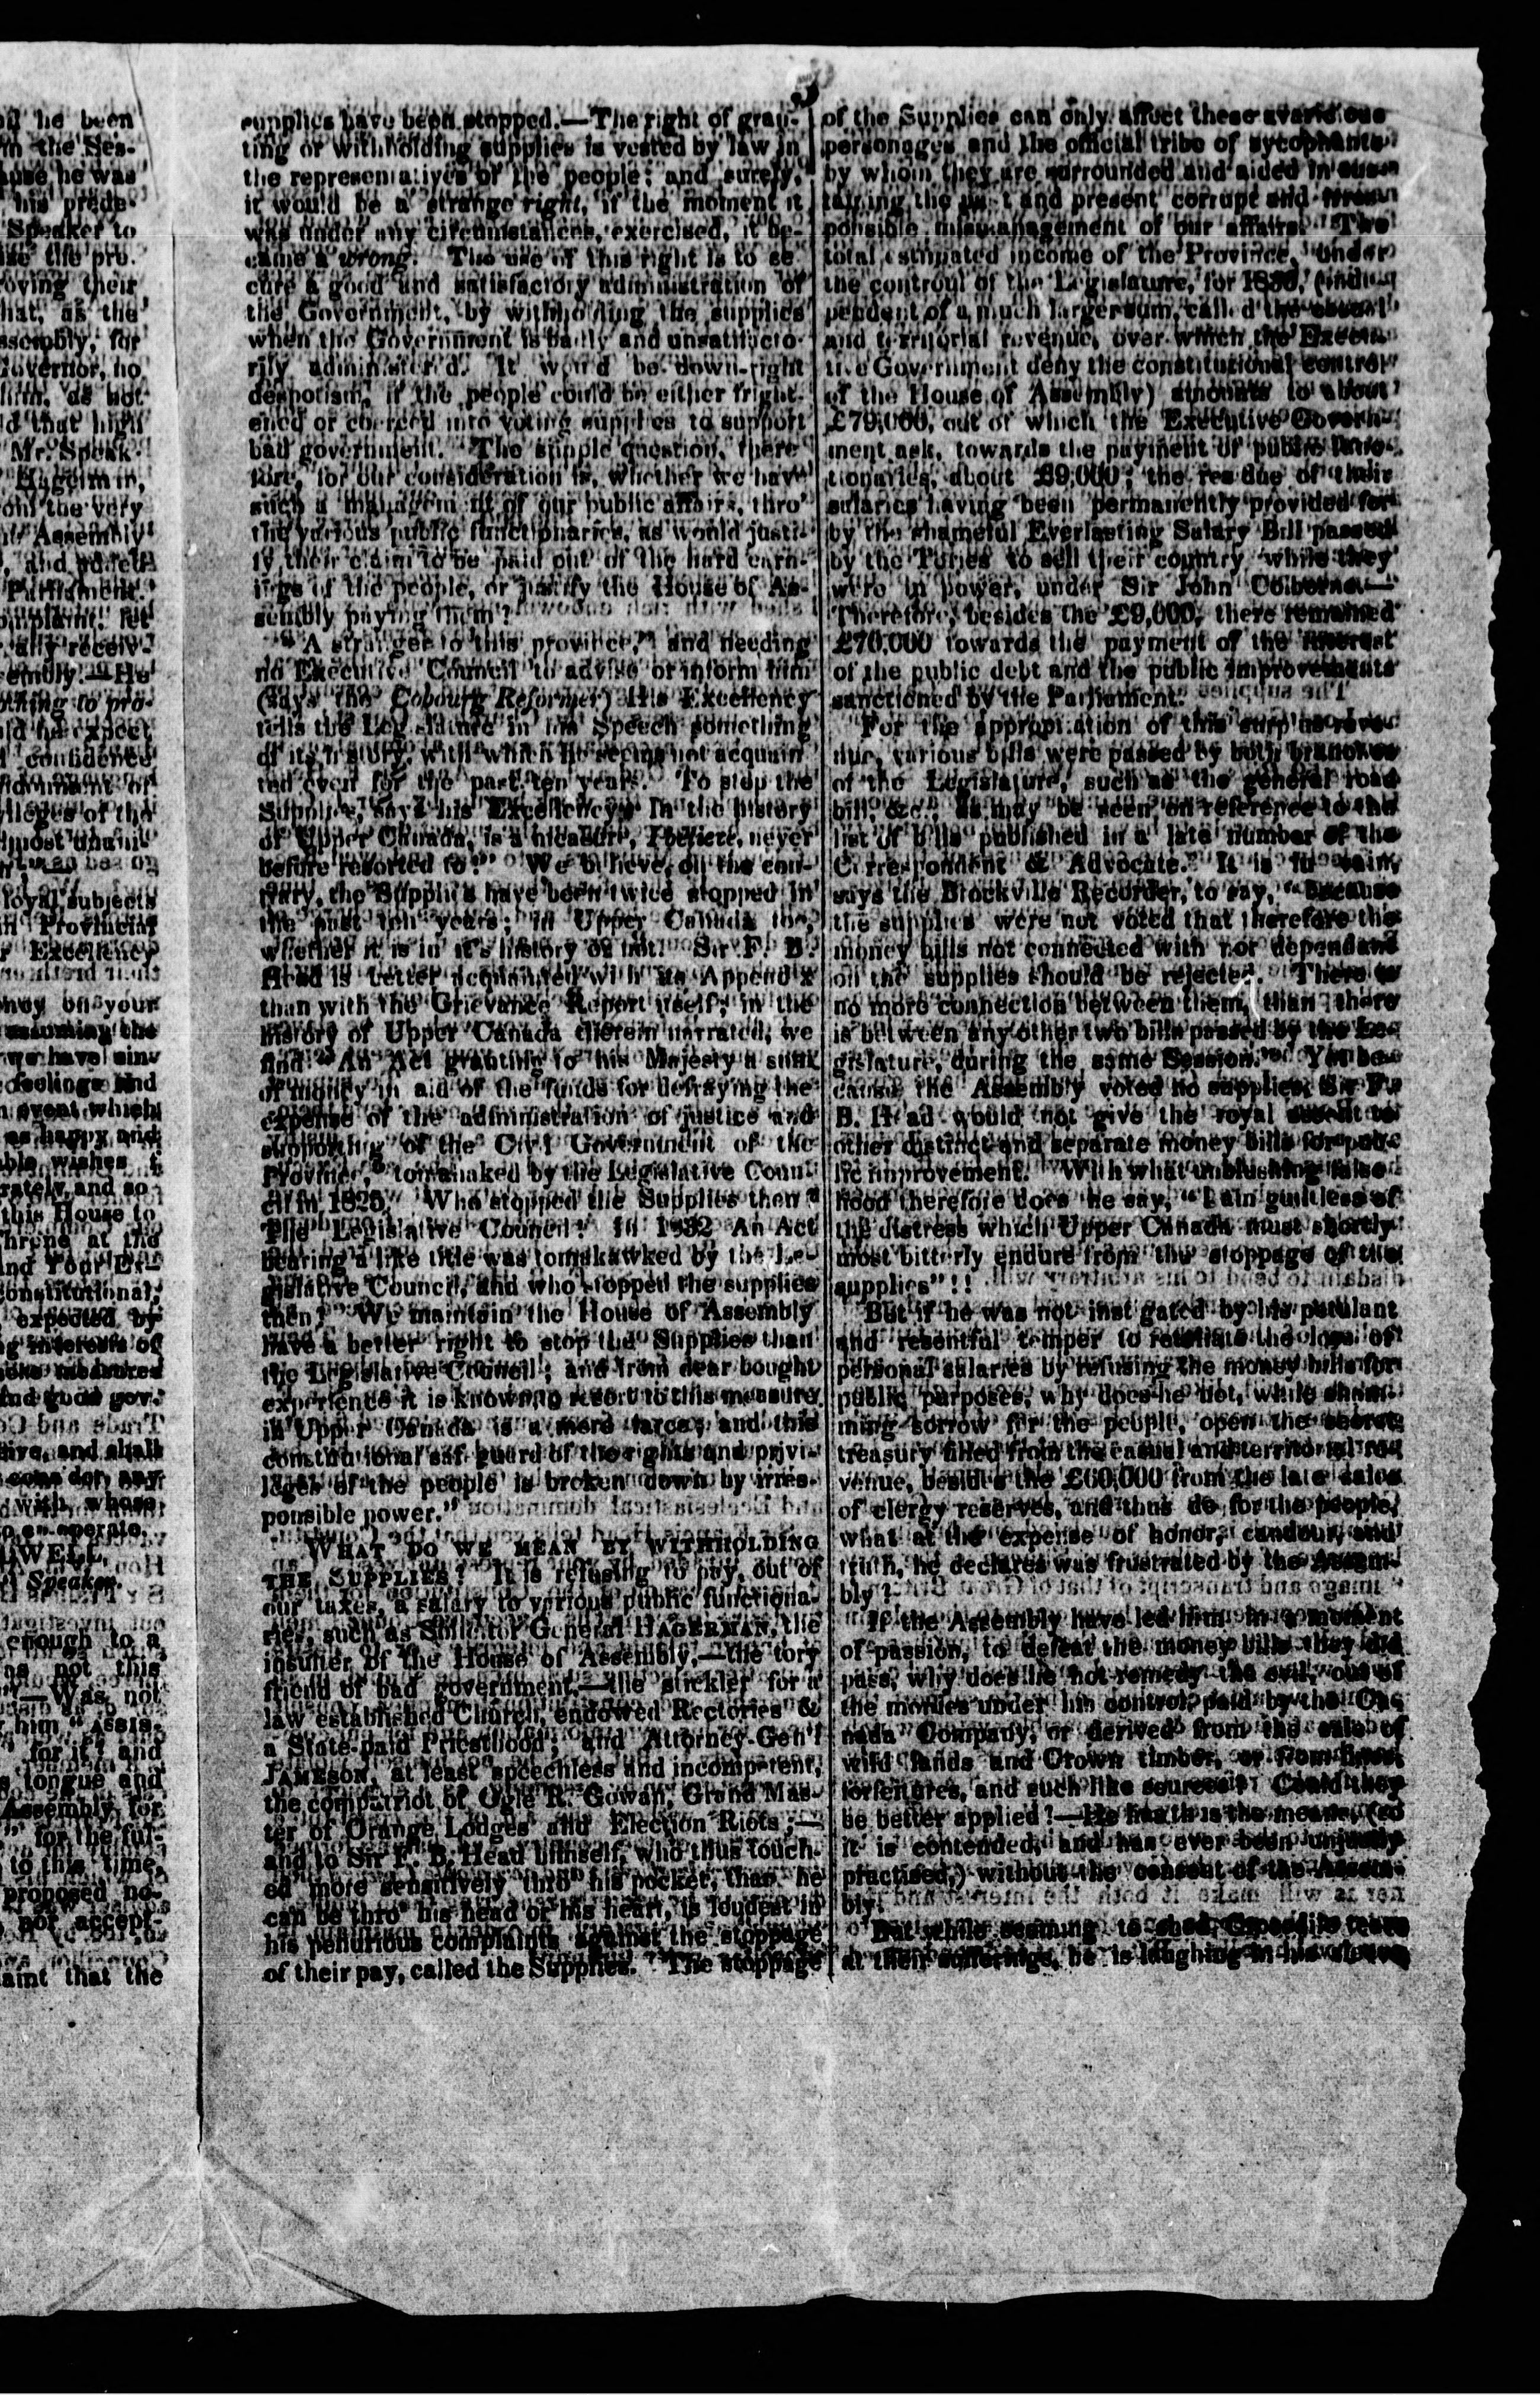 3
d he been
in the Ses-
he was
his prede-
Speaker to
the pre-
oving their
hat, as the
ssembly, for
Governor, no
him, as not
d that high
Mr. Speak-
Hagerman,
om the very
Assembly
, and
Parliament.
omplaint, let
ally receiv-
embly.—He
othing to pro-
ld he expect
confidence
of
ileges of the
lmost unani-
loyal subjects
Provincial
r Excellency
ney on your
assuming the
we have sin-
feelings and
event which
as happy and
able wishes
rately, and so-
this House to
hrone at the
and Your Ex-
onstitutional,
expected by
g interests of
measures
and good gov-
ive, and shall
consider any
with whose
co-operate.
WELL,
Speaker.
enough to a
as not this
"—Was not
him "ASSIS-
for it? and
s tongue and
Assembly, for
" for the ful-
to this time,
proposed no-
not accept-
aint that the
supplies have been stopped.—The right of gran-
ting or withholding supplies is vested by law in
the representatives of the people; and surely,
it would be a strange right, if the moment it
was under any circumstances, exercised, it be-
came a wrong. The use of this right is to se
cure a good and satisfactory administration of
the Government, by withholding the supplies
when the Government is badly and unsatisfacto-
rily administered. It would be down-right
despotism, if the people could be either fright-
ened or coerced into voting supplies to support
bad government. The simple question, there
fore, for our consideration is, whether we have
such a management of our public affairs, thro'
the various public functionaries, as would justi-
fy their claim to be paid out of the hard earn-
ings of the people, or justify the House of As-
sembly paying them?
"A stranger to this province," and needing
no Executive Council to advise or inform him
(says the Cobourg Reformer) His Excellency
tells the Legislature in his Speech something
of its history, with which he seems not acquain
ted even for the past ten years. To stop the
Supplies, says his Excellency, in the history
of Upper Canada, is a measure, I believe, never
before resorted to!" We believe, on the con-
trary, the Supplies have been twice stopped in
the past ten years; in Upper Canada too,
whether it is in it's history or not. Sir F. B.
Head is better acquainted with an Appendix
than with the Grievance Report itself; in the
history of Upper Canada therein narrated, we
find "An Act granting to his Majesty a sum
of money in aid of the funds for defraying the
expense of the administration of justice and
supporting of the Civil Government of the
Province," tomahaked by the Legislative Coun-
cil in 1825. Who stopped the Supplies then?
The Legislative Council! In 1832 An Act
bearing a like title was tomakawked by the Le-
gislative Council, and who stopped the supplies
then? We maintain the House of Assembly
have a better right to stop the Supplies than
the Legislative Council; and from dear bought
experience it is known to resort to this measure
in Upper Canada is a mere farce; and this
constitutional safeguard of the rights and privi-
leges of the people is broken down by irres-
ponsible power."
WHAT DO WE MEAN BY WITHHOLDING
THE SUPPLIES? It is refusing to pay, out of
our taxes, a salary to various public functiona-
ries, such as Solicitor General HAGERMAN, the
insulter of the House of Assembly,—the tory
friend of bad government,—the stickler for a
law established Church, endowed Rectories &
a State-paid Priesthood; and Attorney-Gen'l
JAMESON at least speechless and incompetent,
the compatriot of Ogle R. Gowan, Grand Mas-
ter of Orange Lodges and Election Riots;—
and to Sir F. B. Head himself, who thus touch-
ed more sensitively thro' his pocket, than he
can be thro' his head or his heart, is loudest in
his penurious complaints against the stoppage
of their pay, called the Supplies. The stoppage
of the Supplies can only affect these avaricious
personages and the official tribe of sycophants
by whom they are surrounded and aided in sus-
taining the past and present corrupt and irres-
ponsible mismanagement of our affairs. The
total estimated income of the Province, under
the controul of the Legislature, for 1836, (inde-
pendent of a much larger sum, called the casual
and territorial revenue, over which the Execu-
tive Government deny the constitutional control
of the House of Assembly) amounts to about
£79,000, out of which the Executive Govern-
ment ask, towards the payment of public func-
tionaries, about £9,000; the residue of their
salaries having been permanently provided for
by the shameful Everlasting Salary Bill passed
by the Tories to sell their country while they
were in power, under Sir John Colborne.—
Therefore, besides the £9,000, there remained
£70,000 towards the payment of the interest
of the public debt and the public improvements
sanctioned by the Parliament.
For the appropriation of this surplus reve-
nue, various bills were passed by both branches
of the Legislature, such as the general road
bill, &c., as may be seen on reference to the
list of bills published in a late number of the
Correspondent & Advocate. It is in vain,
says the Brockville Recorder, to say, "because
the supplies were not voted that therefore the
money bills not connected with nor dependant
on the supplies should be rejected. There is
no more connection between them, than there
is between any other two bills passed by the Le-
gislature, during the same Session." Yet be-
cause the Assembly voted no supplies, Sir F.
B. Head would not give the royal assent to
other distinct and separate money bills for pub-
lic improvement. With what unblushing false-
hood therefore does he say, "I am guiltless of
the distress which Upper Canada must shortly
most bitterly endure from the stoppage of the
supplies"!!
But if he was not instigated by his petulant
and resentful temper to retaliate the loss of
personal salaries by refusing the money bills for
public purposes, why does he not, while sham-
ming sorrow for the people, open the secret
treasury filled from the casual and territorial re-
venue, besides the £60,000 from the late sales
of clergy reserves, and thus do for the people,
what at the expense of honor, candour, and
truth, he declares was frustrated by the Assem-
bly?
If the Assembly have led him in a moment
of passion, to defeat the money bills they did
pass, why does he not remedy the evil, out of
the monies under his control, paid by the Ca-
nada Company, or derived from the sale of
wild lands and Crown timber, or from fines,
forfeitures, and such like sources? Could they
be better applied?—He hath is the means, (so
it is contended, and has ever been unjustly
practised,) without the consent of the Assem-
bly.
But while seeming to shed Crocodile tears
at their sufferings, he is laughing in his sleeve